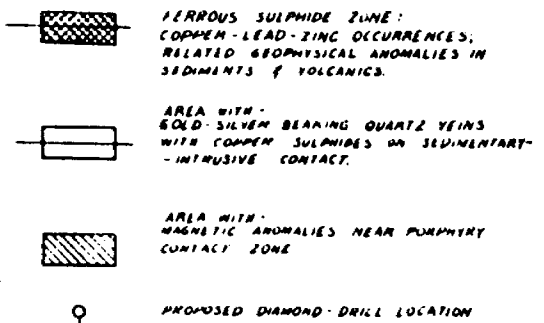 FERROUS SULPHIDE ZONE:
COPPER-LEAD-ZINC OCCURRENCES,
RELATED GEOPHYSICAL ANOMALIES IN
SEDIMENTS & VOLCANICS.
AREA WITH-
GOLD-SILVER BEARING QUARTZ VEINS
WITH COPPER SULPHIDES ON SEDIMENTARY-
-INTRUSIVE CONTACT.
AREA WITH-
MAGNETIC ANOMALIES NEAR PORPHYRY
CONTACT ZONE
PROPOSED DIAMOND-DRILL LOCATION